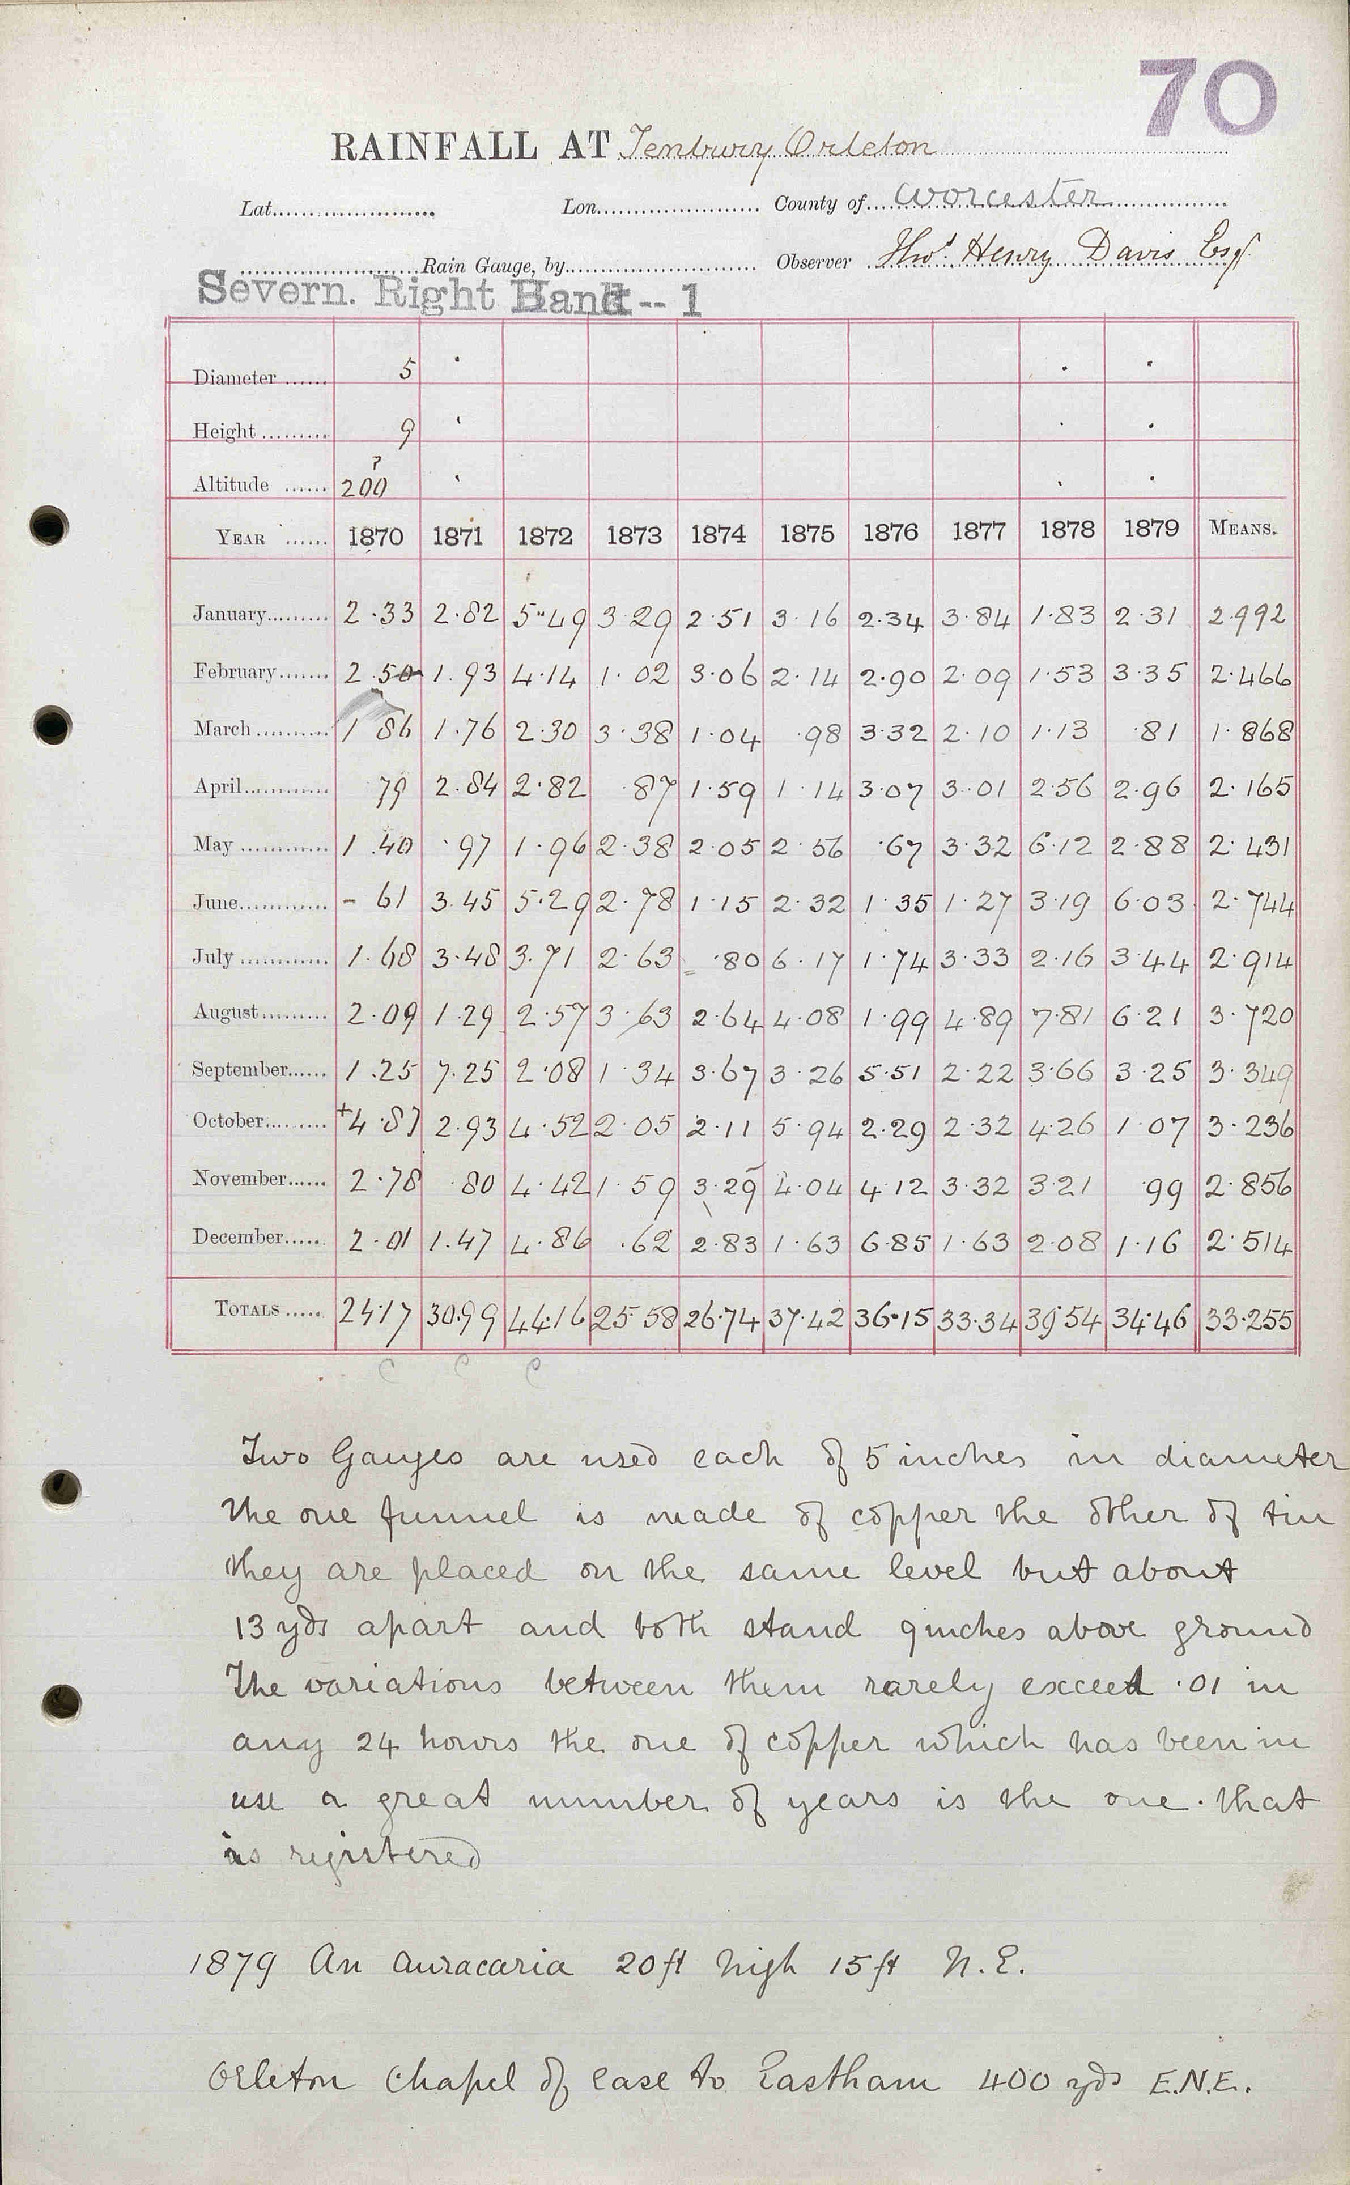 70
RAINFALL AT Tenbury Orleton
Lat. Lon. County of Worcester
Rain Gauge, by Observer Thos. Henry Davis Esqr
Severn. Right Hand -- 1
Diameter 5
Height 9
Altitude 200 ?
YEAR 1870 1871 1872 1873 1874 1875 1876 1877 1878 1879 MEANS.
January 2.33 2.82 5.49 3.29 2.51 3.16 2.34 3.84 1.83 2.31 2.992
February 2.50 1.93 4.14 1.02 3.06 2.14 2.90 2.09 1.53 3.35 2.466
March 1 86 1.76 2.30 3.38 1.04 .98 3.32 2.10 1.13 .81 1.868
April 79 2.84 2.82 .87 1.59 1.14 3.07 3.01 2.56 2.96 2.165
May 1.40 .97 1.96 2.38 2.05 2.56 .67 3.32 6.12 2.88 2.431
June - 61 3.45 5.29 2.78 1.15 2.32 1.35 1.27 3.19 6.03 2.744
July 1.68 3.48 3.71 2.63 .80 6.17 1.74 3.33 2.16 3.44 2.914
August 2.09 1.29 2.57 3.63 2.64 4.08 1.99 4.89 7.81 6.21 3.720
September 1.25 7.25 2.08 1.34 3.67 3.26 5.51 2.22 3.66 3.25 3.349
October +4.87 2.93 4.52 2.05 2.11 5.94 2.29 2.32 4.26 1.07 3.236
November 2.78 .80 4.42 1.59 3.29 4.04 4.12 3.32 3.21 .99 2.856
December 2.01 1.47 4.86 .62 2.83 1.63 6.85 1.63 2.08 1.16 2.514
TOTALS 24.17 30.99 44.16 25.58 26.74 37.42 36.15 33.34 39.54 34.46 33.255
C C C
Two Gauges are used each of 5 inches in diameter
the one funnel is made of copper the other of tin
they are placed on the same level but about
13 yds apart and both stand 9 inches above ground
The variations between them rarely exceed .01 in
any 24 hours the one of copper which has been in
use a great number of years is the one that
is registered
1879 An auracaria 20 ft high 15 ft N.E.
Orleton Chapel of ease to Eastham 400 yds E.N.E.